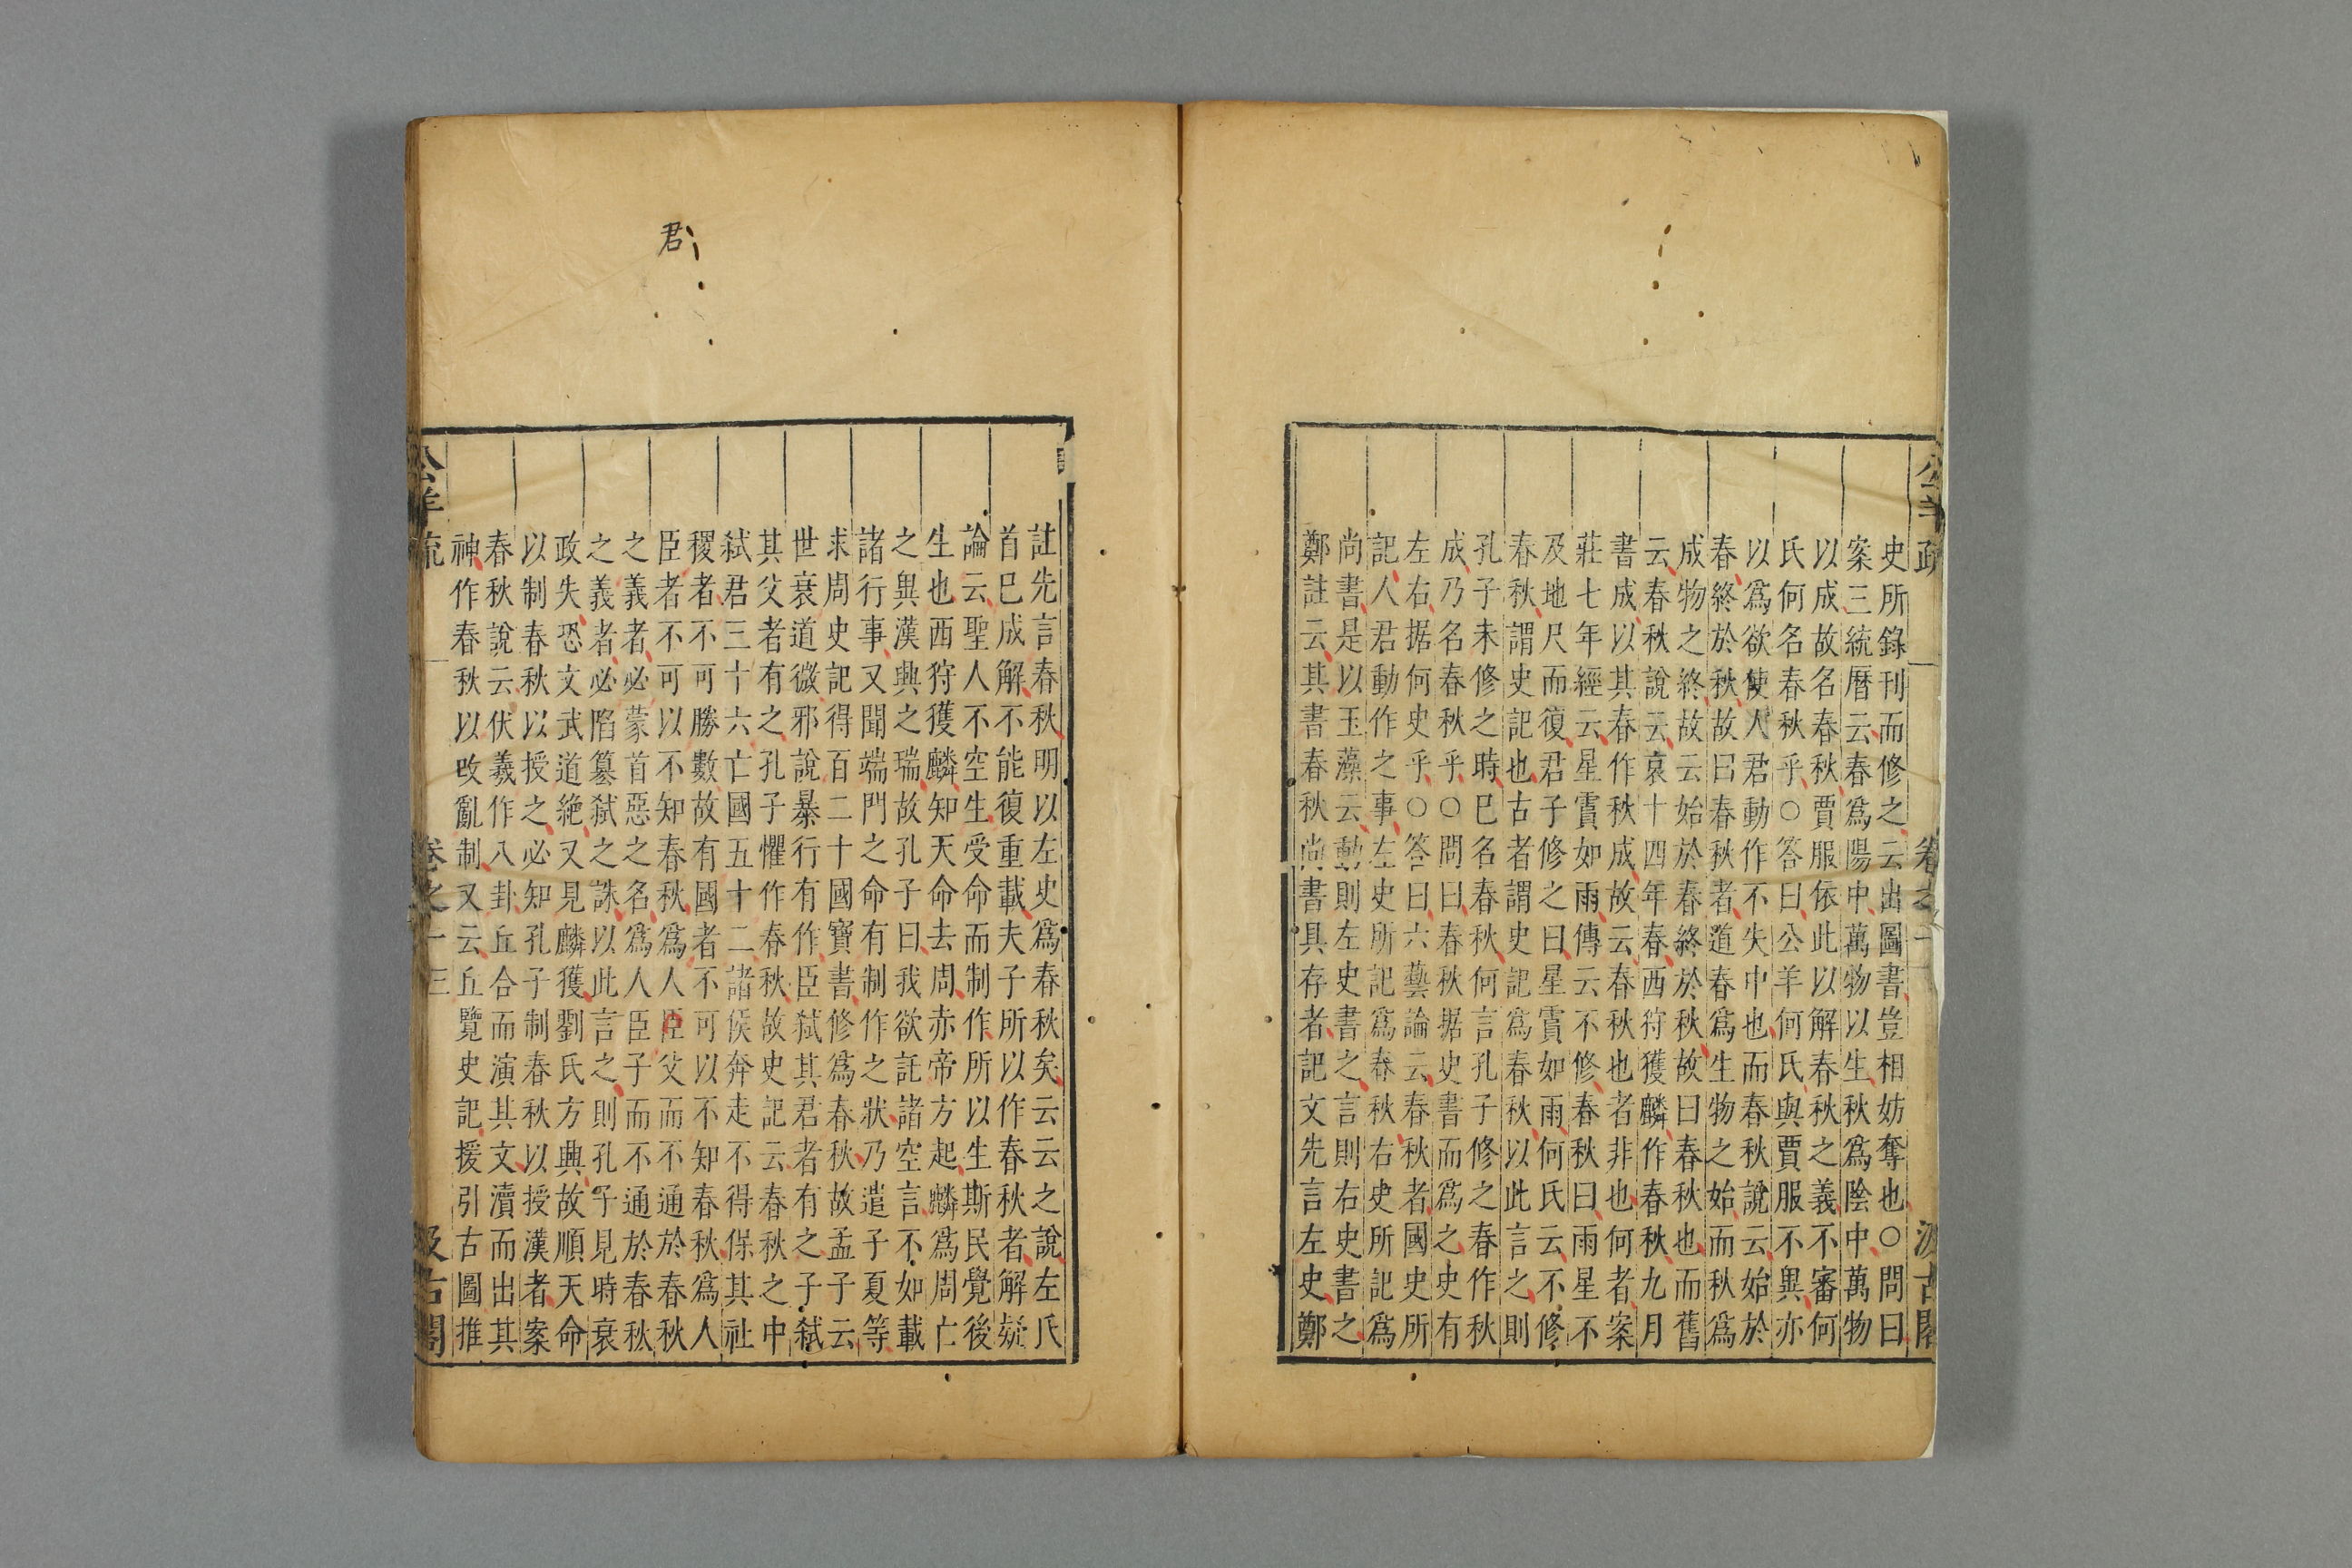 史所錄刊而修之云出圖書豈相妨奪也〇問曰
案三統曆云春爲陽中萬物以生秋爲陰中萬物
以成故名春秋賈服依此以解春秋之義不審何
氏何名春秋乎〇答曰公羊何氏與賈服不異亦
以爲欲使人君動作不失中也而春秋說云始於
春終於秋故曰春秋者道春爲生物之始而秋爲
成物之終故云始於春終於秋故曰春秋也而舊
云春秋說云哀十四年春西狩獲麟作春秋九月
書成以其春作秋成故云春秋也者非也何者案
莊七年經云星霣如雨傳云不修春秋曰雨星不
及地尺而復君子修之曰星霣如雨何氏云不修
春秋謂史記也古者謂史記爲春秋以此言之則
孔子未修之時已名春秋何言孔子修之春作秋
成乃名春秋乎〇問曰春秋据史書而爲之史有
左右据何史乎〇答曰六藝論云春秋者國史所
記人君動作之事左史所記爲春秋右史所記爲
尚書是以玉藻云動則左史書之言則右史書之
鄭註云其書春秋尚書具存者記文先言左史鄭
公羊疏 卷之一 汲古閣
註先言春秋明以左史爲春秋矣云云之說左氏
首已成解不能復重載夫子所以作春秋者解疑
論云聖人不空生受命而制作所以生斯民覺後
生也西狩獲麟知天命去周赤帝方起麟爲周亡
之異漢興之瑞故孔子曰我欲託諸空言不如載
諸行事又聞端門之命有制作之狀乃遣子夏等
求周史記得百二十國寶書修爲春秋故孟子云
世衰道微邪說暴行有作臣弑其君者有之子弑
其父者有之孔子懼作春秋故史記云春秋之中
弑君三十六亡國五十二諸侯奔走不得保其社
稷者不可勝數故有國者不可以不知春秋爲人
臣者不可以不知春秋爲人臣父而不通於春秋
之義者必蒙首惡之名爲人臣子而不通於春秋
之義者必陷篡弑之誅以此言之則孔子見時衰
政失恐文武道絶又見麟獲劉氏方興故順天命
以制春秋以授之必知孔子制春秋以授漢者案
春秋說云伏羲作八卦丘合而演其文瀆而出其
神作春秋以改亂制又云丘覽史記援引古圖推
公羊疏 卷之一 三 汲古閣
君